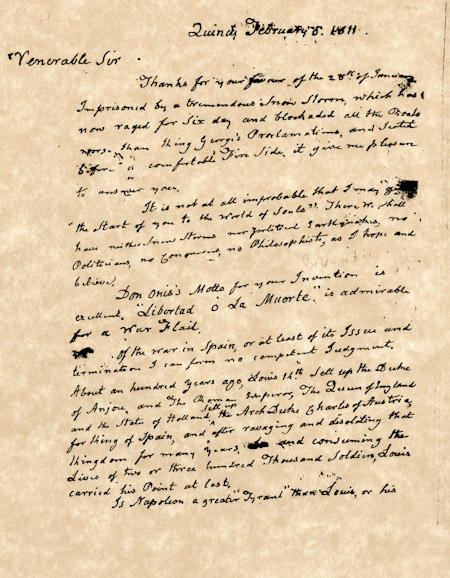 Quincy February 5. 1811.
Venerable Sir
Thanks for your favour of the 28th of January
Imprisoned by a tremendous Snow Storm, which has
now raged for Six day and blockaded all the Roads
worse than King George's Proclamations, and Seated
before a comfortable Fire Side, it give me pleasure
to answer you.
It is not at all improbable that I may
"the Start of you to the World of Souls". There We shall
have neither Snow Storms nor political Earthquakes, no
Politicians, no Conquerors, no Philosophists, as I hope and
believe.
Don Onis's Motto for your Invention is
excellent. "Libertad o La Muorte." is admirable
for a War Flail.
Of the war in Spain, or at least of its Issue and
termination I can form no competent Judgment,
About an hundred years ago, Louis 14th Sett up the Duke
of Anjou, and The Roman Emperor, The Queen of England
and the State of Holland sett up the Arch Duke Charles of Austria,
for King of Spain, and after ravaging and desolating that
Kingdom for many years, and consuming the
Lives of two or three hundred Thousand Soldiers, Louis
carried his Point at last.
Is Napoleon a greater "Tyrant" than Louis, or his